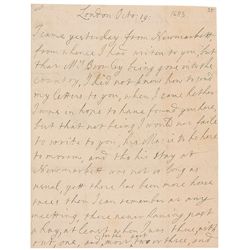 London Octo: 19:
I came yesterday from Newmarkett
from whence I had written to you, but
that Mr being gone into the
country, I did not know how to send
my letters to you, when I came hether
I was in hope to have found you here,
but that not being, I would not faile
to write to you, his Ma: is to be here
to morrow, and tho his stay at
Newmarkett was not so long as
usual, yett there has been more horse
races then I can remember as any
meeting, there never having past
a day, at least when was
out, one, and most two or three, and